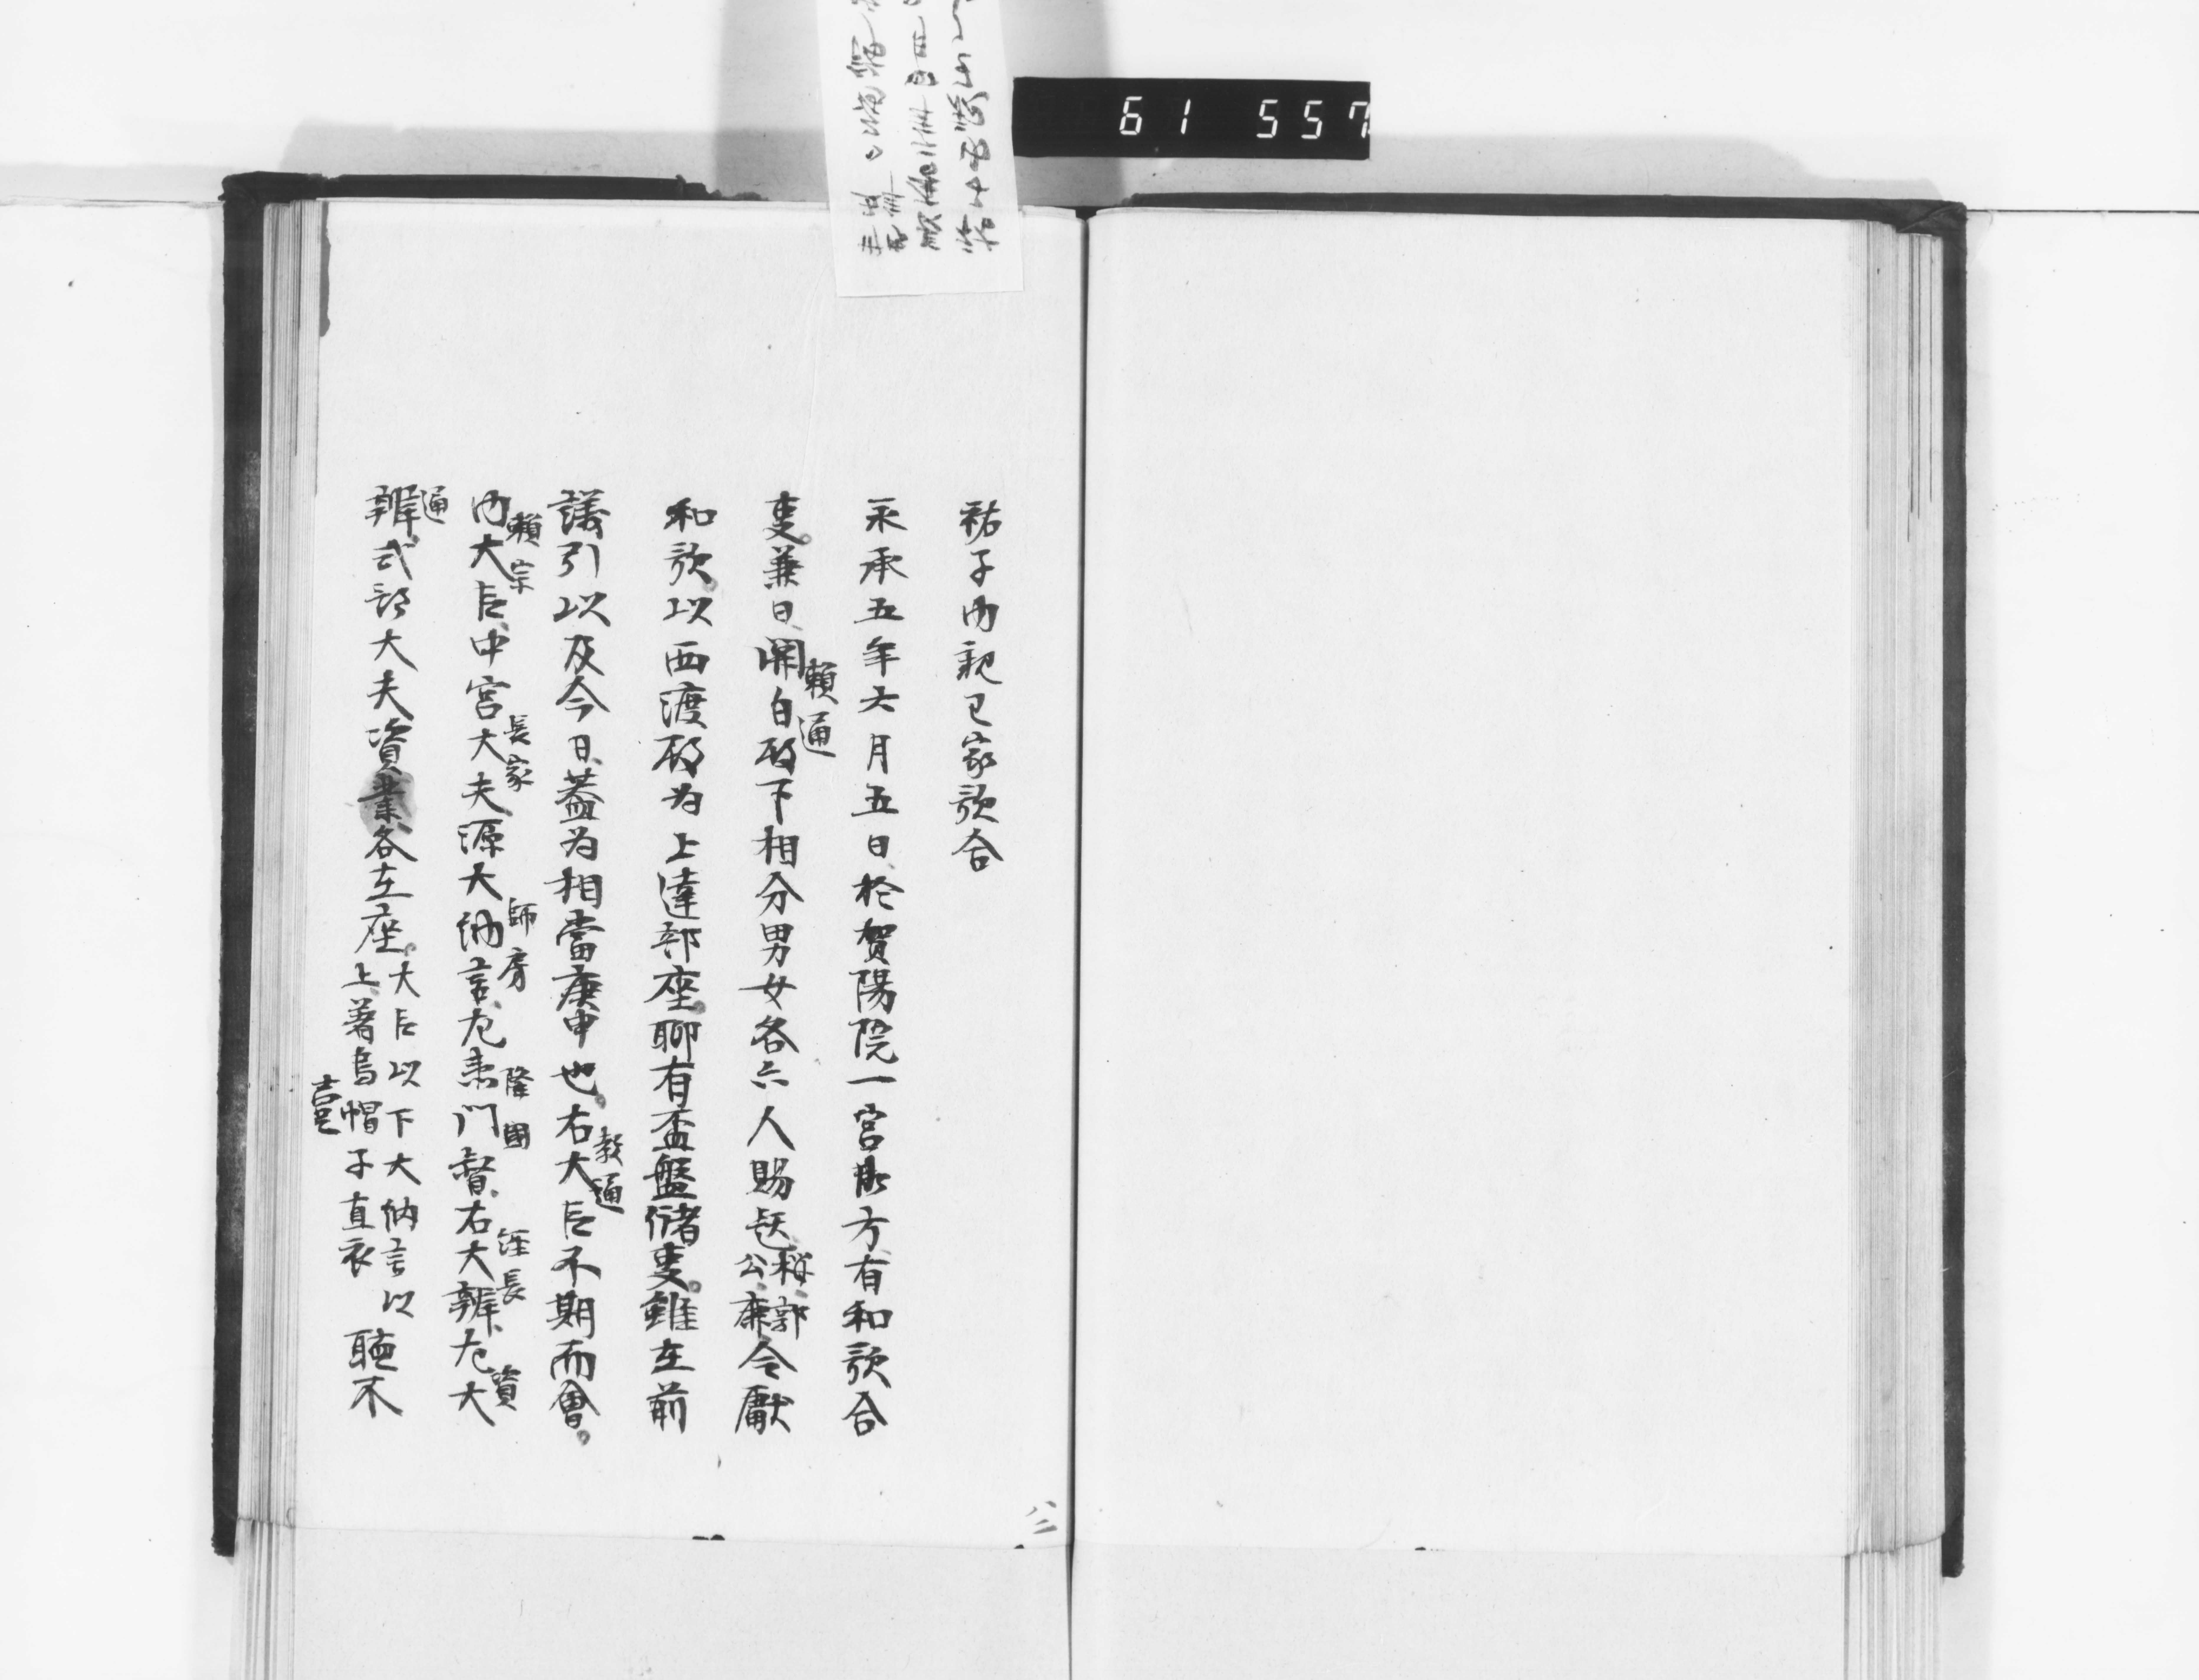 61 557
祐子内親王家歌合
永承五年六月五日於賀陽院一宮御方有和歌合
事兼日関白殿下相分男女各六人賜題桜郭公鹿令献
頼通
和歌以西渡殿為上達部座聊有盃盤儲事雖在前
議引以及今日蓋為相當庚申也右大臣不期而會
教通
内大臣中宮大夫源大納言左衛門督右大辨左大
頼宗 長家 師房 隆國 経長 資
辨式部大夫資業各在座大臣以下大納言以上著烏帽子直衣聴不
通